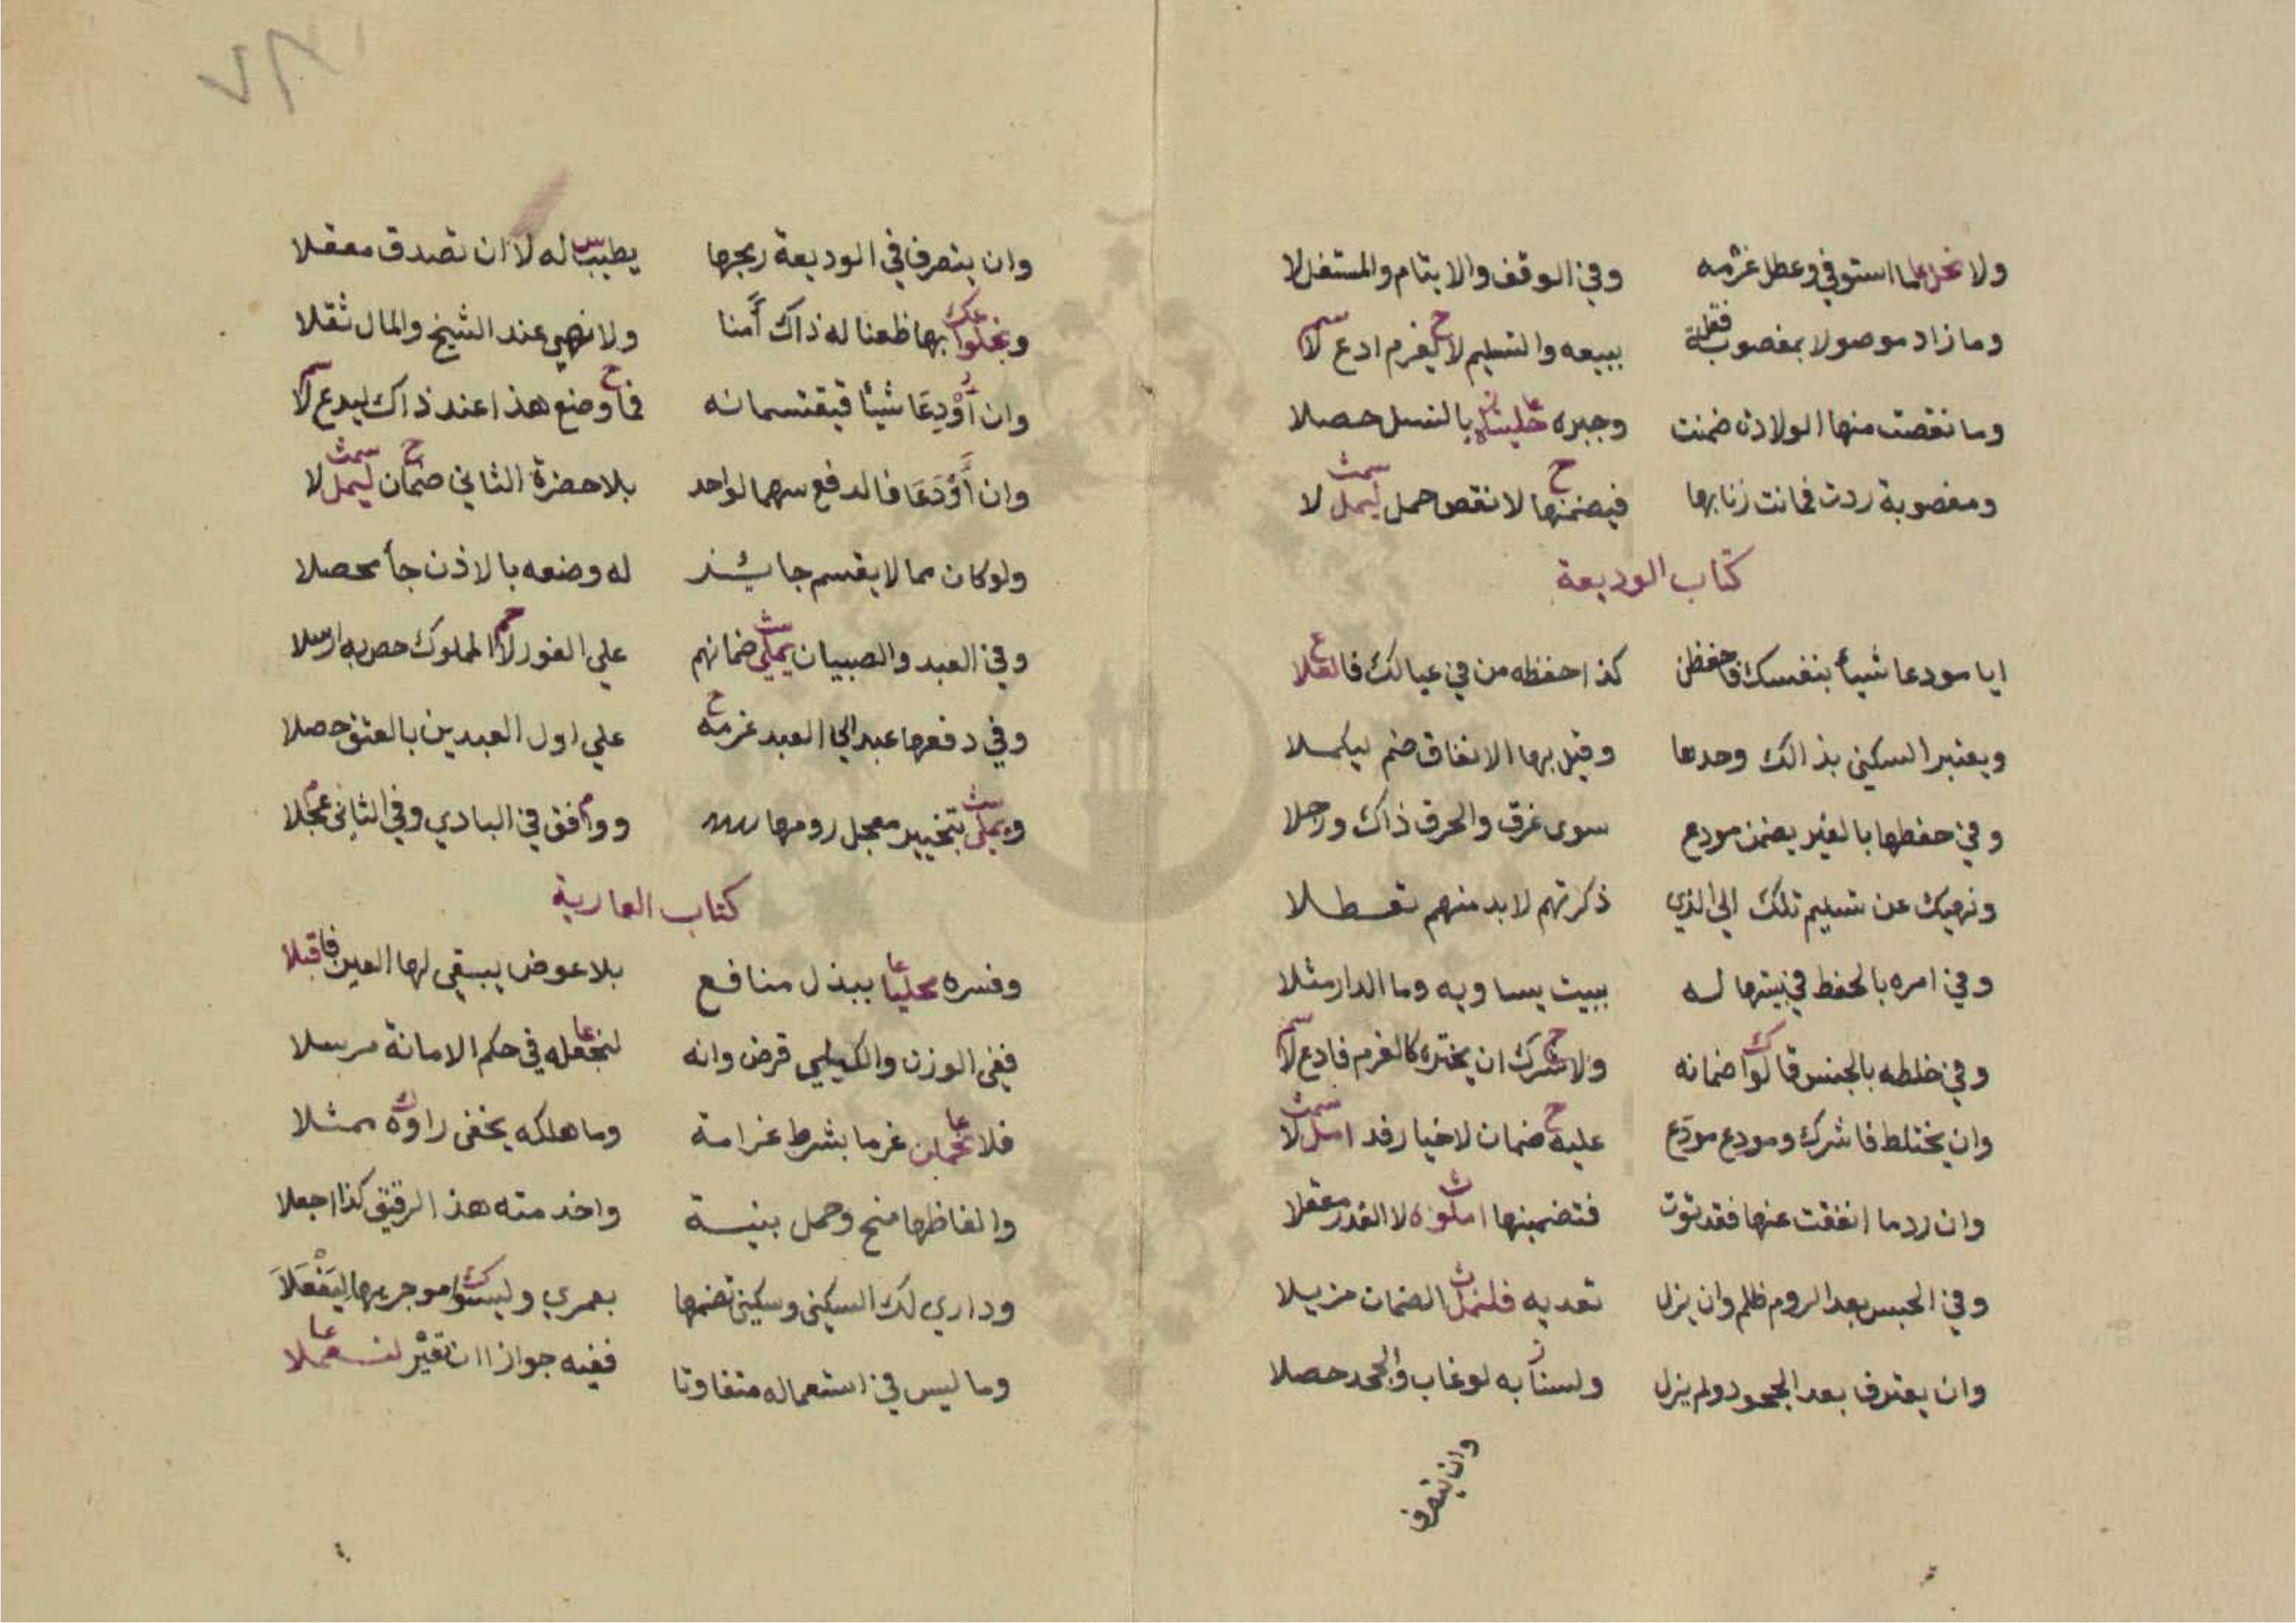 ولا نحل عا ما استوفي وعطل غرمه وفي الوقف والايتام والمستغل لا
وما زاد موصولا بمغصوب فقل ببيعه والتسليم لا يغرم ادع لا
وما نقصت منها الولادة ضمنت وجبره خلينا بالنسل حصلا
ومغصوبة ردت فماتت زنا بها فيضمنها لا نقص حمل ليمل لا
كتاب الوديعة
ايا مودعا شيئا بنفسك فاحفظن كذا حفظه من في عيالك فانقلا
ويعتبر السكنى بذالك وحدها وقيل بها الانفاق ضم ليكملا
وفي حفظها بالغير يضمن مودع سوى غرق والحرق ذاك ورجلا
ونهيك عن تسليم تلك الى الذي ذكرتهم لا بد منهم تعطلا
وفي امره بالحفظ في بيتها له ببيت يساويه وما الدار مثلا
وفي خلطه بالجنس قالوا ضمانه ولا شرك ان يختره كالغرم فادع لا
وان يختلط فاشرك ومودع مودع عليه ضمان لا خيار فد امل لا
وان رد ما انفقت عنها فقد توت فتضمينها املوه لا القدر معقلا
وفي الحبس بعد الروم ظلم وان يزل تعديه فلنمل الضمان مزيلا
وان يعترف بعد الجحود ولم يزل ولسنا به لو غاب والجحد حصلا
وان يتصرف
وان يتصرف في الوديعة ربحها يطيب له لا ان تصدق معقلا
بها ظعنا له ذاك أمنا ولا نهي عند الشيخ والمال ثقلا
وان أودعا شيئا فيقتسمانه فاوضع هذا عند ذاك ليدع لا
وان أودعا فالدفع سهما لواحد بلا حضرة الثاني ضمان ليمل لا
ولو كان مما لا يقسم جائز له وضعه بالاذن جا محصلا
وفي العبد والصبيان يملي ضمانهم علي الفور لا المملوك خص به ارسلا
وفي دفعها عبد الي العبد غرمه علي اول العبدين بالعتق حصلا
ويملي بتخيير معجل رومها ووافق في البادي وفي الثاني عجلا
كتاب العارية
وفسره محليا ببذل منافع بلا عوض يبقي لها العين فاقبلا
ففي الوزن والكيلي قرض وانه لنجعله في حكم الامانة مرسلا
فلا غرما بشرط غرامة وما هلكه يخفى راوه ممثلا
والفاظها منح وحمل بنية واخدمته هذا الرقيق كذا اجعلا
وداري لك السكنى وسكنى تضمها بعمري وليسوا موجريها ليفعلا
وما ليس في استعماله متفاوتا ففيه جواز ان تغير